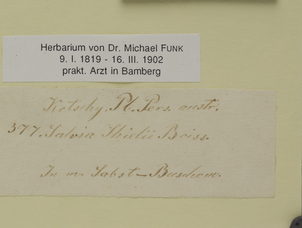 Herbarium von Dr. Michael FUNK
9. I. 1819 - 16. III. 1902
prakt. Arzt in Bamberg
Kotschy, Pl. Pers. austr.
377. Salvia Boiss.
In m. Sabst-Buschom.